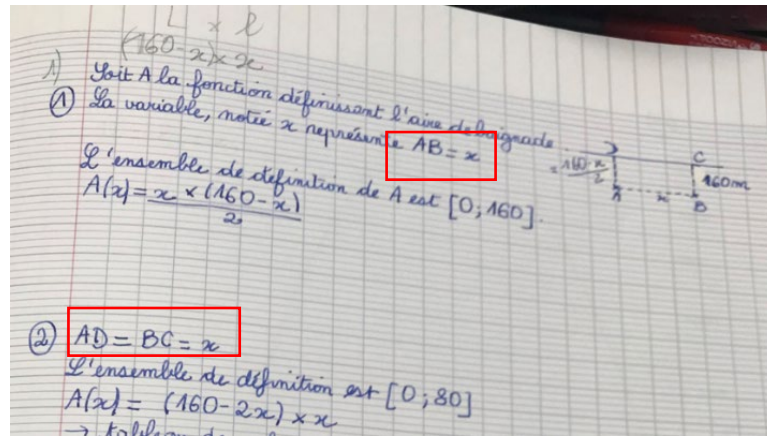 L x l
(160-x)x x
1) Soit A la fonction définissant l'aire de baignade.
① La variable, notée x représente AB = x
L'ensemble de définition de A est [0; 160].
A(x) = x × (160-x)
2
= 160-x
2
C
160m
A
x
B
② AD = BC = x
L'ensemble de définition est [0; 80]
A(x) = (160-2x) × x